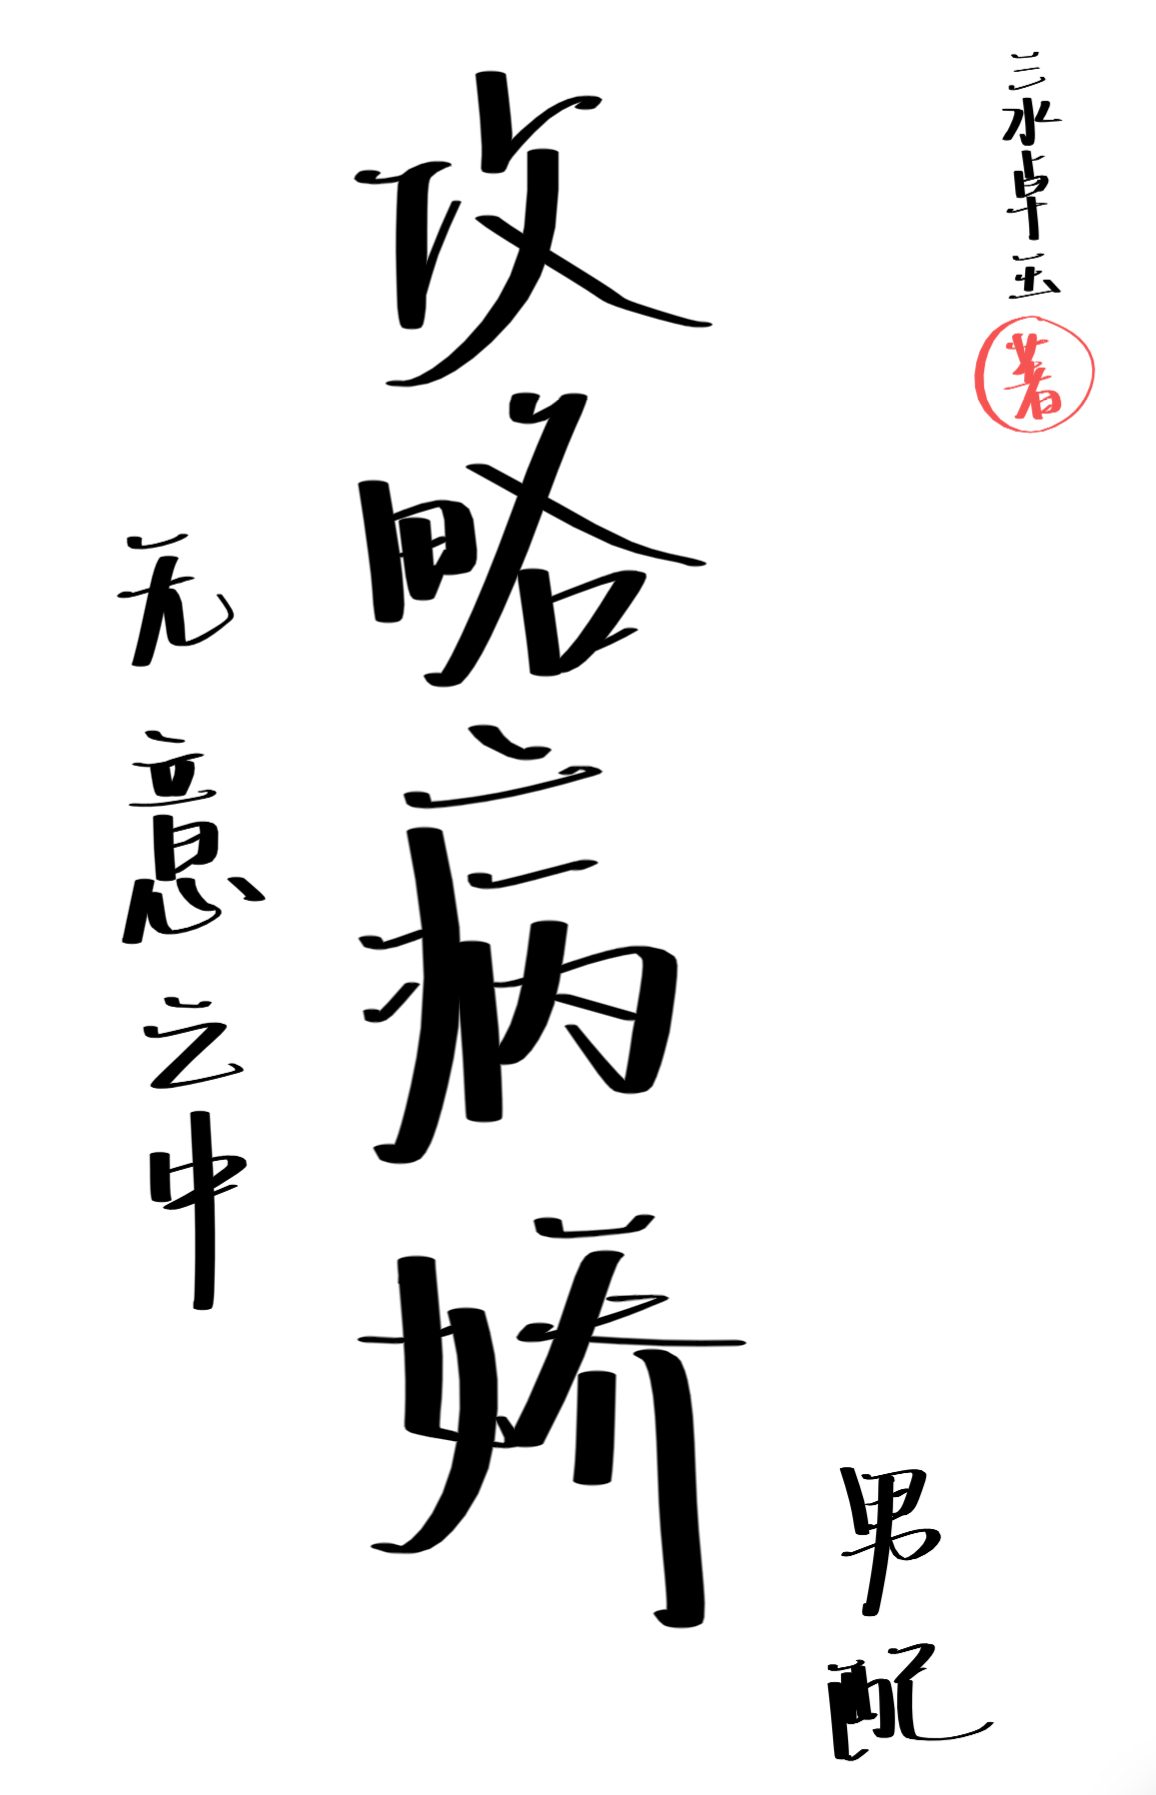 无意之中
攻略病娇
男配
三水卓玉
著